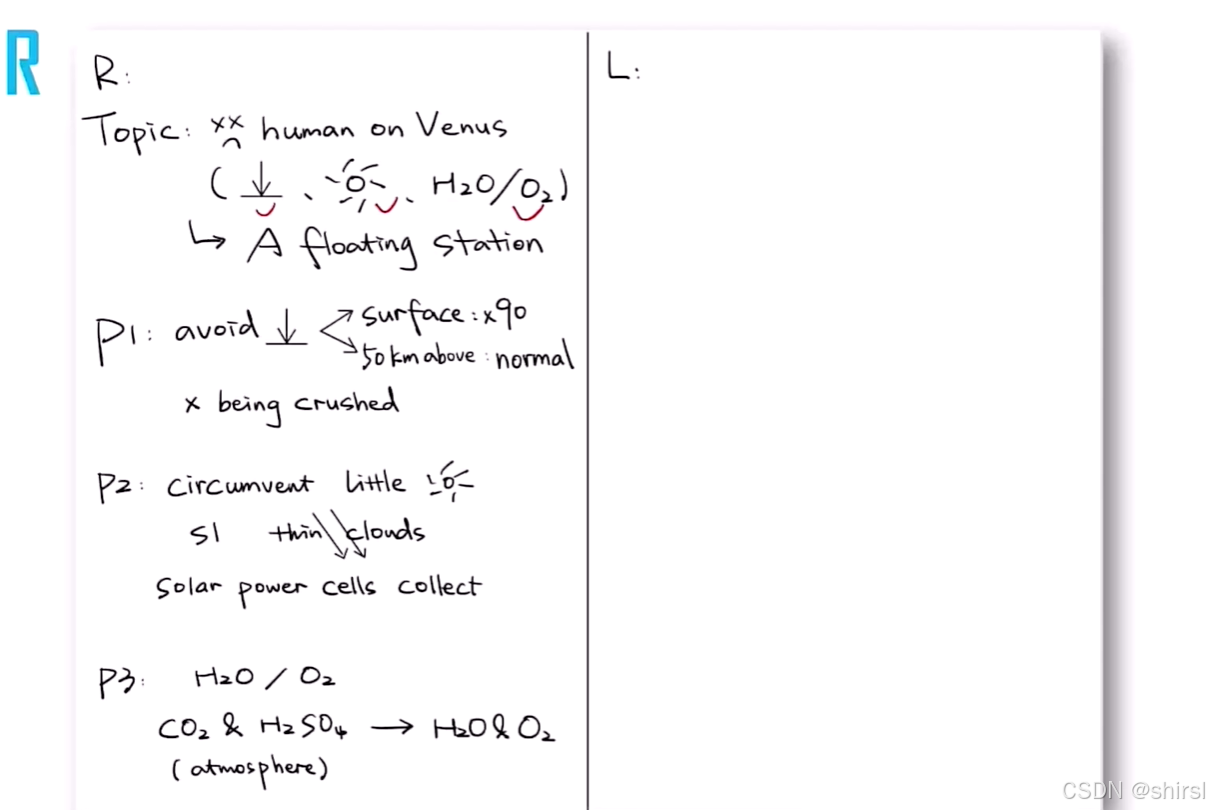 R
R:
Topic: xx human on Venus
( ↓ 、 、 H₂O/O₂)
↳ A floating station
P1: avoid ↓ surface: x90
50km above: normal
x being crushed
P2: circumvent little
Sl thin clouds
Solar power cells collect
P3: H₂O / O₂
CO₂ & H₂SO₄ → H₂O & O₂
(atmosphere)
L:
CSDN @shirsl